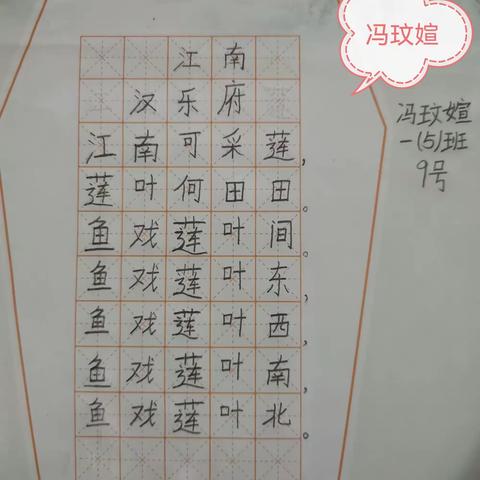 冯玟媗
江南
汉乐府
江南可采莲,
莲叶何田田。
鱼戏莲叶间。
鱼戏莲叶东,
鱼戏莲叶西,
鱼戏莲叶南,
鱼戏莲叶北。
冯玟媗
一(5)班
9号